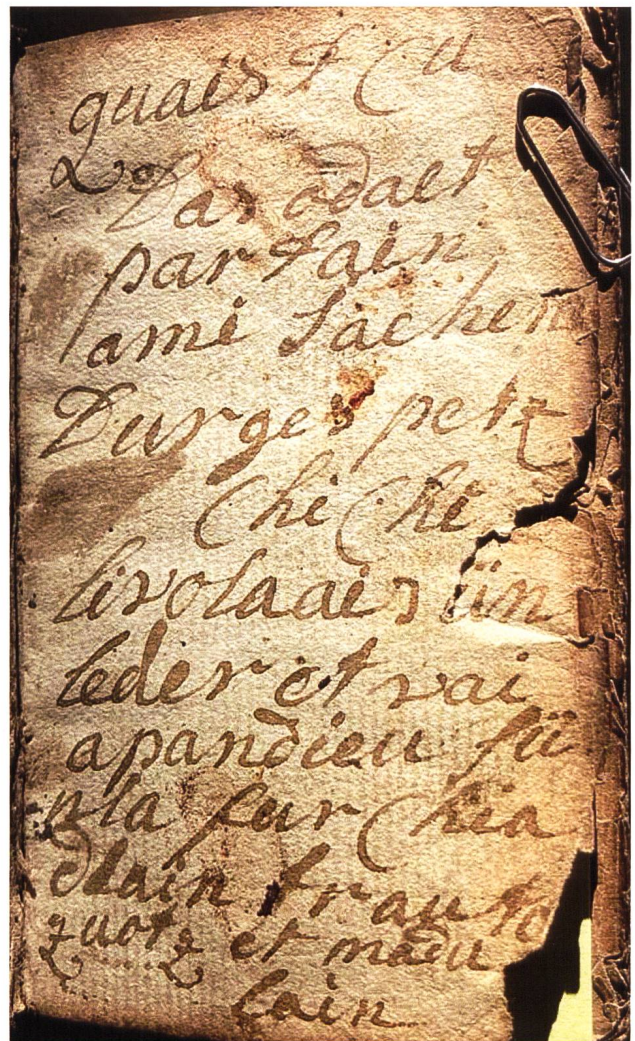 quais & Cu
Das odalt
par fain
ami Sachen
Durges petz
Chi Chi
livolaaies ün
leder et vai
apandieu fü
nla fur Chia
dlain frau to
zuotz et madu
lain